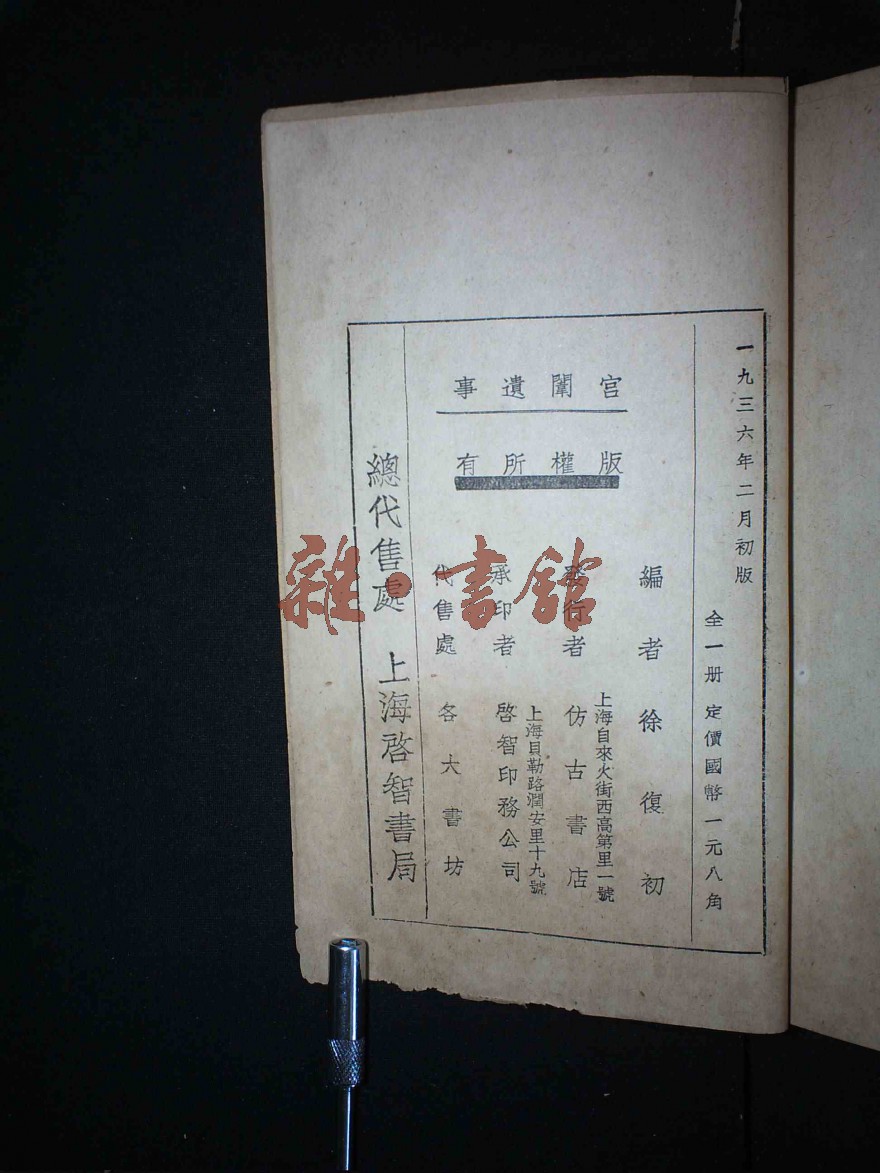 一九三六年二月初版
全一册 定價國幣一元八角
宮闈遺事
版權所有
編者 徐復初
上海自來火街西高第里一號
發行者 仿古書店
上海貝勒路潤安里十九號
承印者 啓智印務公司
代售處 各大書坊
總代售處 上海啓智書局
雜·書館